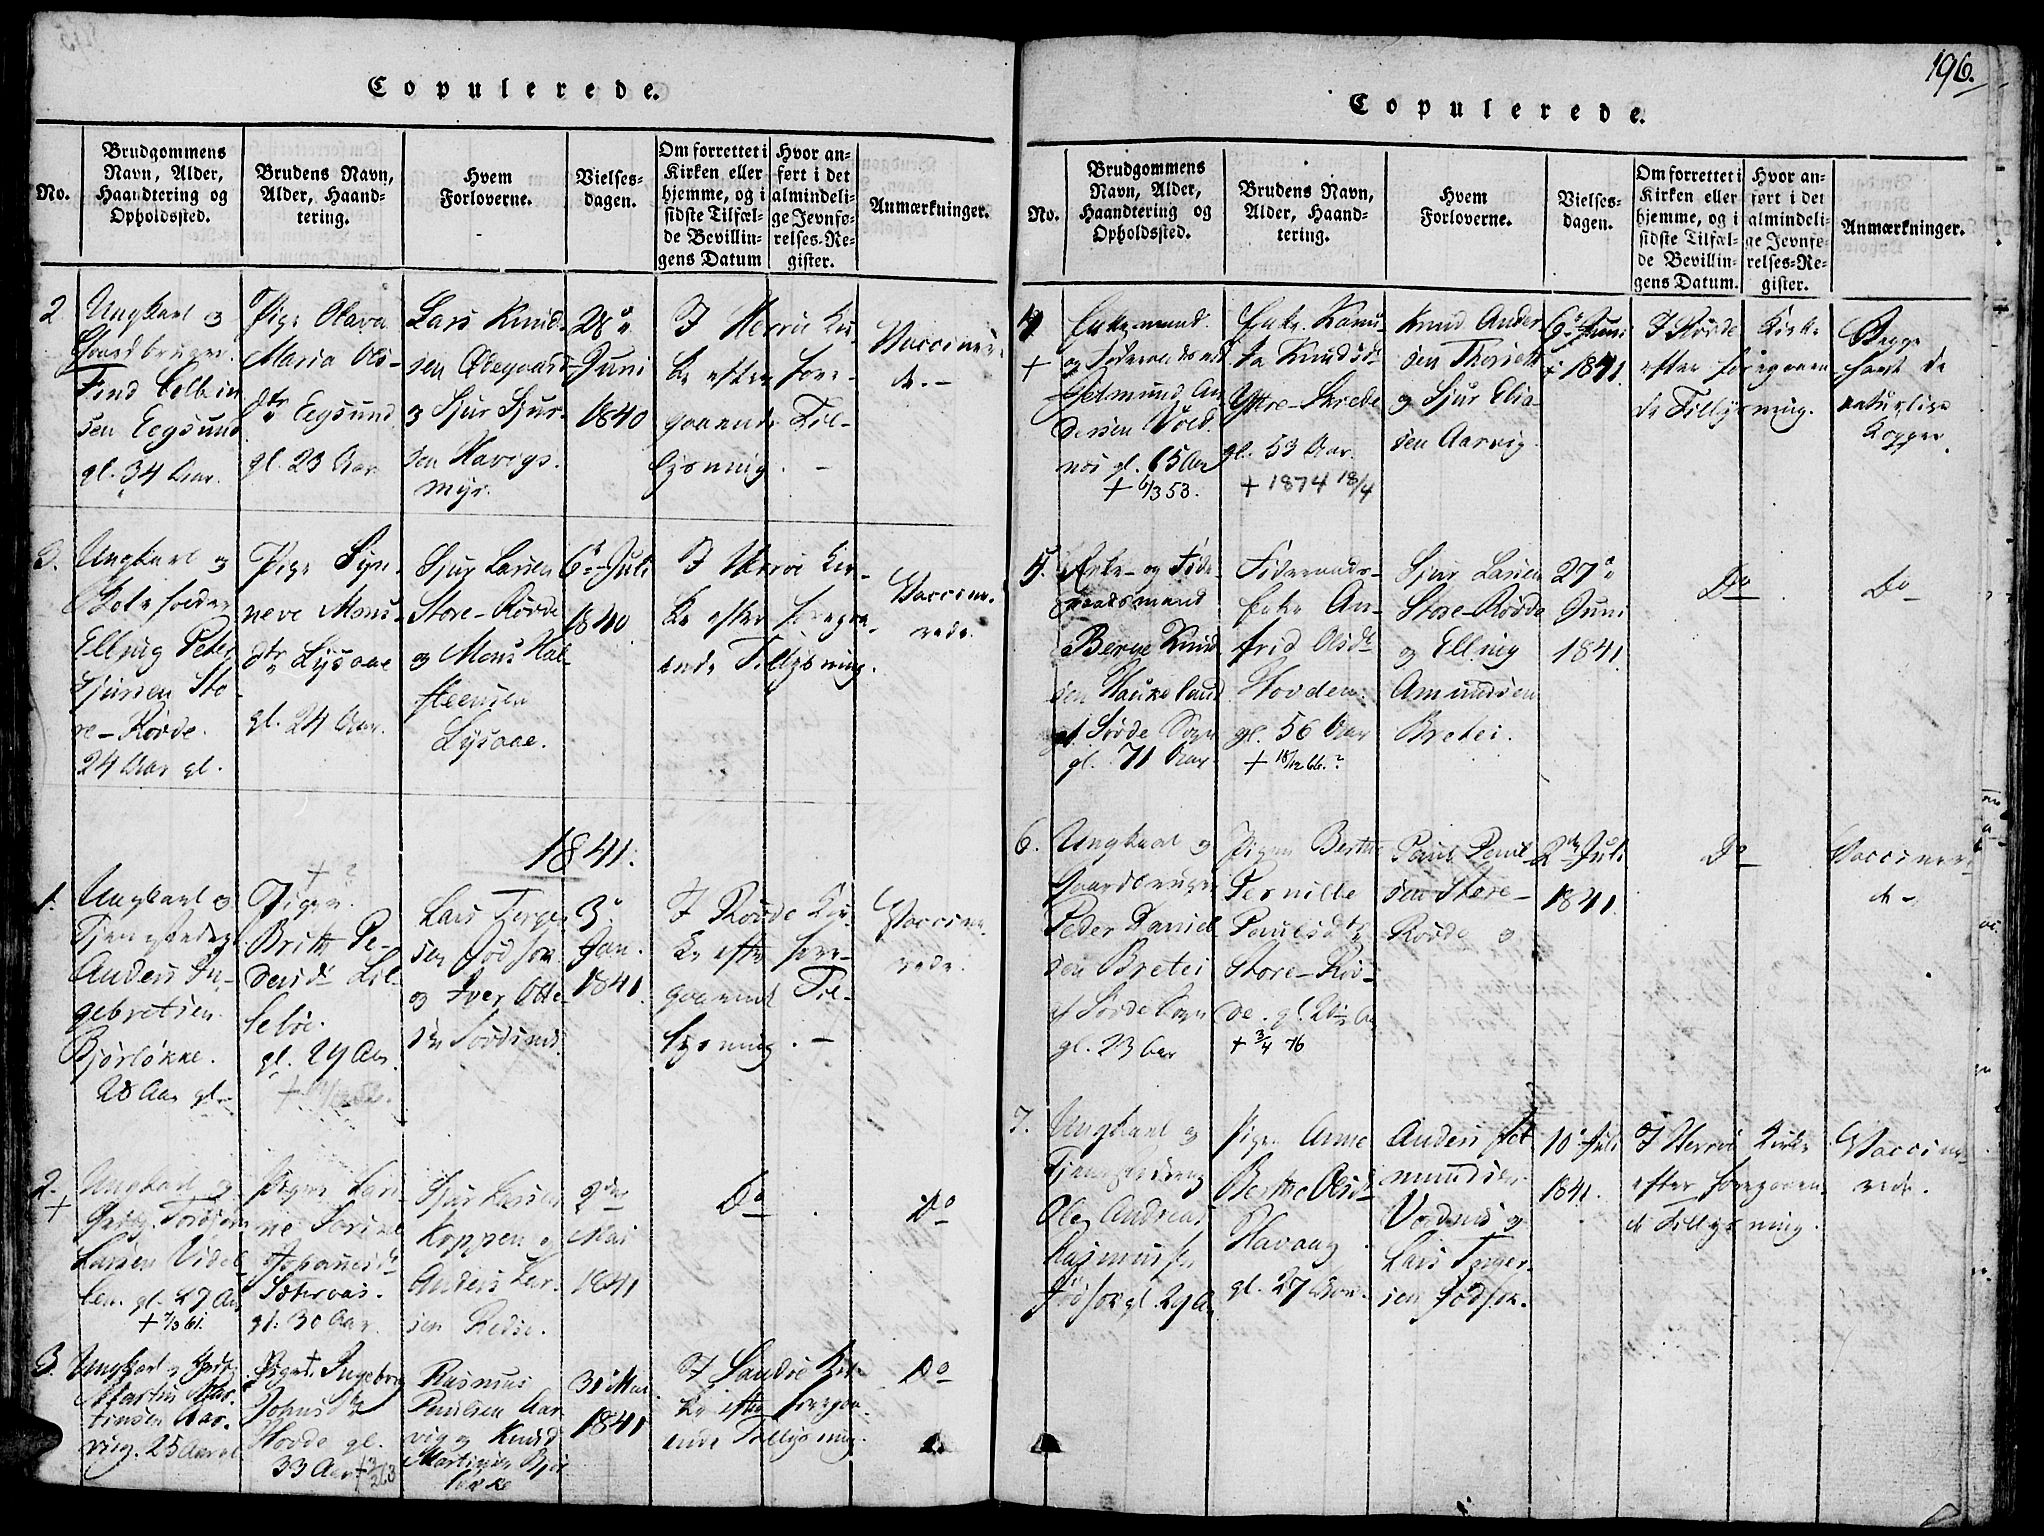 196.
Copulerede.
No.
Brudgommens
Navn, Alder,
Haandtering og
Opholdssted.
Brudens Navn,
Alder, Haand-
tering.
Hvem
Forloverne.
Vielses-
dagen.
Om forrettet i
Kirken eller
hjemme, og i
sidste Tilfæl-
de Bevillin-
gens Datum
Hvor an-
ført i det
almindeli-
ge Jevnfø-
relses-Re-
gister.
Anmærkninger.
2
Ungkarl og
Gaardbruger
Find Colbin
sen Eegsund
gl. 34 Aar.
Pige Olava
Maria Ols-
dtr Eegsund
gl. 23 Aar
Lars Knud-
sen Ødegaard
og Sjur Sjur-
sen Havigs-
myr.
28de
Juni
1840
I Herrø Kir-
ke efter fore-
gaaende Til-
lysning. -
Vaccinere-
de. -
3.
Ungkarl og
Elling Peter
Sjursen Sto-
re-Røvde.
24 Aar gl.
Pige Syn-
neve Mons-
dtr Lysaae
gl. 24 Aar.
Sjur Larsen
Store-Røvde
og Mons Hal-
steensen
Lysaae.
6te Juli
1840
I Herrø Kir-
ke efter foregaa-
ende Tillysning.
Vaccine-
rede.
1841.
1.
Ungkarl og
Tjenestedreng
Anders In-
gebretsen
Bjørløkke.
28 Aar gl.
+ ?
Pigen
Britt Pe-
dersdr
gl. 29 Aar.
Lars
og Iver Otte-
sen
3die
Jan.
1841.
I Røvde Kir-
ke efter fore-
gaaende Til-
lysning. -
Vaccine-
rede.
2.
+
Ungkarl og
Larsen
gl. 27 Aar
+ 7/3 61.
Pigen
gl. 30 Aar.
Sjur Larsen
Koppen og
Anders Lar-
sen
2den
Mai
1841
Do
Do
3.
Ungkarl og
Martin Mar-
tinsen Aar-
vig. 25 Aar gl
Pigen Ingeborg
Johnsdtr
Hovde gl.
33 Aar
Rasmus
Paulsen Aar-
vig og Knud
Martinsen Bjør
løkke
31te Mai
1841
I Sandø Kir-
ke efter foregaa-
ende Tillysning.
Do
Copulerede.
No.
Brudgommens
Navn, Alder,
Haandtering og
Opholdssted.
Brudens Navn,
Alder, Haand-
tering.
Hvem
Forloverne.
Vielses-
dagen.
Om forrettet i
Kirken eller
hjemme, og i
sidste Tilfæl-
de Bevillin-
gens Datum.
Hvor an-
ført i det
almindeli-
ge Jevnfø-
relses-Re-
gister.
Anmærkninger.
4
+
Enkemand
og Føderaadsmd
Getmund An-
dersen Vold-
næs gl. 65 Aar
+ 6/3 53.
Enke
Knudsdr
Ytre-Skrede
gl. 53 Aar.
+ 1874 18/4
Knud Ander-
sen
og Sjur Elia-
sen Aarvig.
6te Juni
1841.
I Røvde Kirke
efter foregaaen-
de Tillysning.
Begge
havt de
naturlige
Kopper.
5.
Enke- og Føde-
raadsmand
Berge Knud
sen Haukeland
af Søvde Sogn
gl. 71 Aar
Føderaads-
Enke An-
frid Olsdr
Hovden
gl. 56 Aar
+ 18/12 66.?
Sjur Larsen
Store-Røvde
og Elling
Amundsen
Bretei.
27de
Juni
1841.
Do
Do
6.
Ungkarl og
Gaardbruger
Peder Daniel-
sen Bretei
af Søvde Sogn
gl. 23 Aar
Pigen Berthe
Pernille
Paulsdtr
Store-Røv-
de.
+ 3/4 76
Paul Paul-
sen Store-
Røvde og
2den Juli
1841.
Do
Vaccinere-
de -
7.
Ungkarl og
Tjenestedreng
Ole Andreas
Rasmussen
gl. 29 Aar
Pigen Anne
Berthe Olsdr
Havaag
gl. 27 Aar.
Anders Get-
mundsen
Voldnæs og
Lars
sen
10de Juli
1841.
I Herrø Kirke
efter foregaaen-
de Tillysning.
Vaccine-
rede.